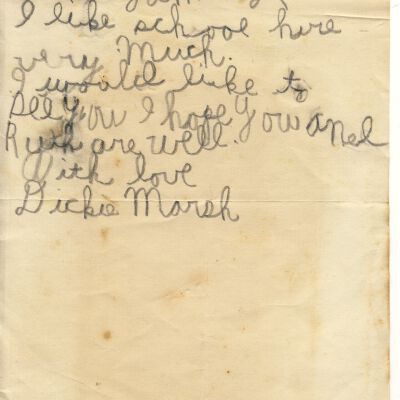 I like school here
very Much.
I would like to
See you I hope you and
Ruth are well.
With love
Dickie Marsh